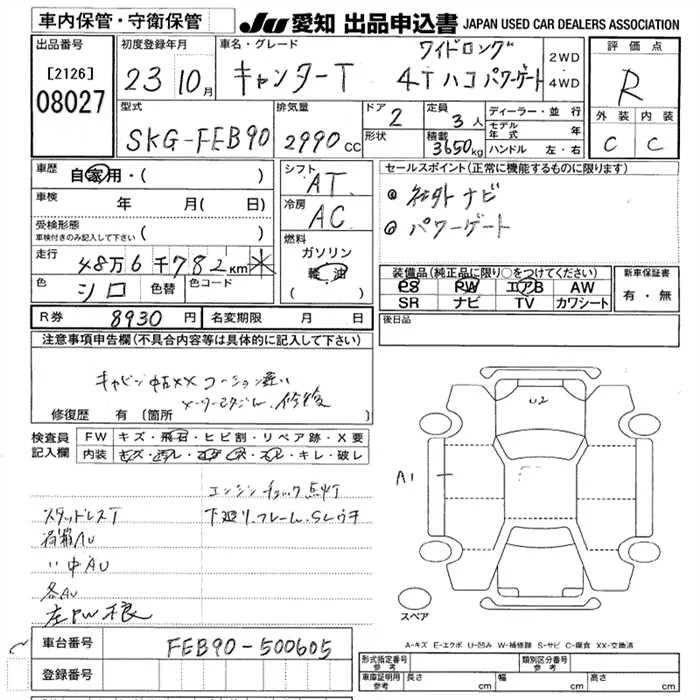 車内保管・守衛保管 JU 愛知 出品申込書 JAPAN USED CAR DEALERS ASSOCIATION
出品番号
[2126]
08027
初度登録年月
23 10月
車名・グレード
キャンターT
ワイドロング
4T ハコ パワーゲート
2WD
・
4WD
評価点
R
外装 内装
C C
型式
SKG-FEB90
排気量
2990 CC
ドア 2
形状
定員 3人
積載 3650kg
ディーラー・並行
モデル年式 年
ハンドル 左・右
車歴
自家用・( )
車検 年 月( 日)
受検形態
車検付きのみ記入して下さい ( )
走行
48万6千782km
色 シロ 色替 色コード
シフト
AT
冷房
AC
燃料
ガソリン
軽油
( )
セールスポイント(正常に機能するものに限ります)
社外ナビ
パワーゲート
装備品(純正品に限り○をつけてください)
PS PW エアB AW
SR ナビ TV カワシート
新車保証書
有・無
R券 8930円 名変期限 月 日
後日品
注意事項申告欄(不具合内容等は具体的に記入して下さい)
修復歴 有 [箇所
検査員記入欄
FW キズ・飛石・ヒビ割・リペア跡・X要
内装 キズ・汚レ・コゲ・ス・キレ・破レ
エンジンチェック点灯
スタッドレスT
下廻り、フレーム、SLウチ
荷箱AU
〃中AU
各AU
左PW不良
U2
A1
スペア
A-キズ E-エクボ U-凹み W-補修跡 S-サビ C-腐食 XX-交換済
車台番号 FEB90-500605
登録番号
形式指定番号 参考
類別区分番号 参考
車庫証明用 参考 長さ cm 幅 cm 高さ cm